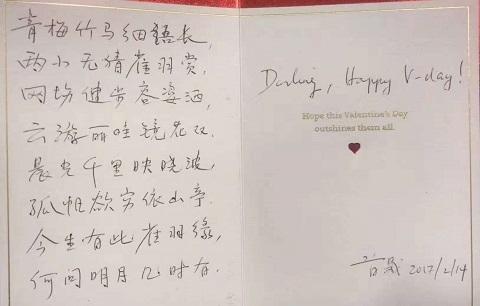 青梅竹马细語长，
两小无猜雀羽赏，
网场健步容姿洒，
云游丽哇镜花双，
晨光千里映晓波，
孤帆欲穷依山亭，
今生有此雀羽缘，
何问明月几时有.
Darling, Happy V-day!
Hope this Valentine's Day
outshines them all.
2017/2/14